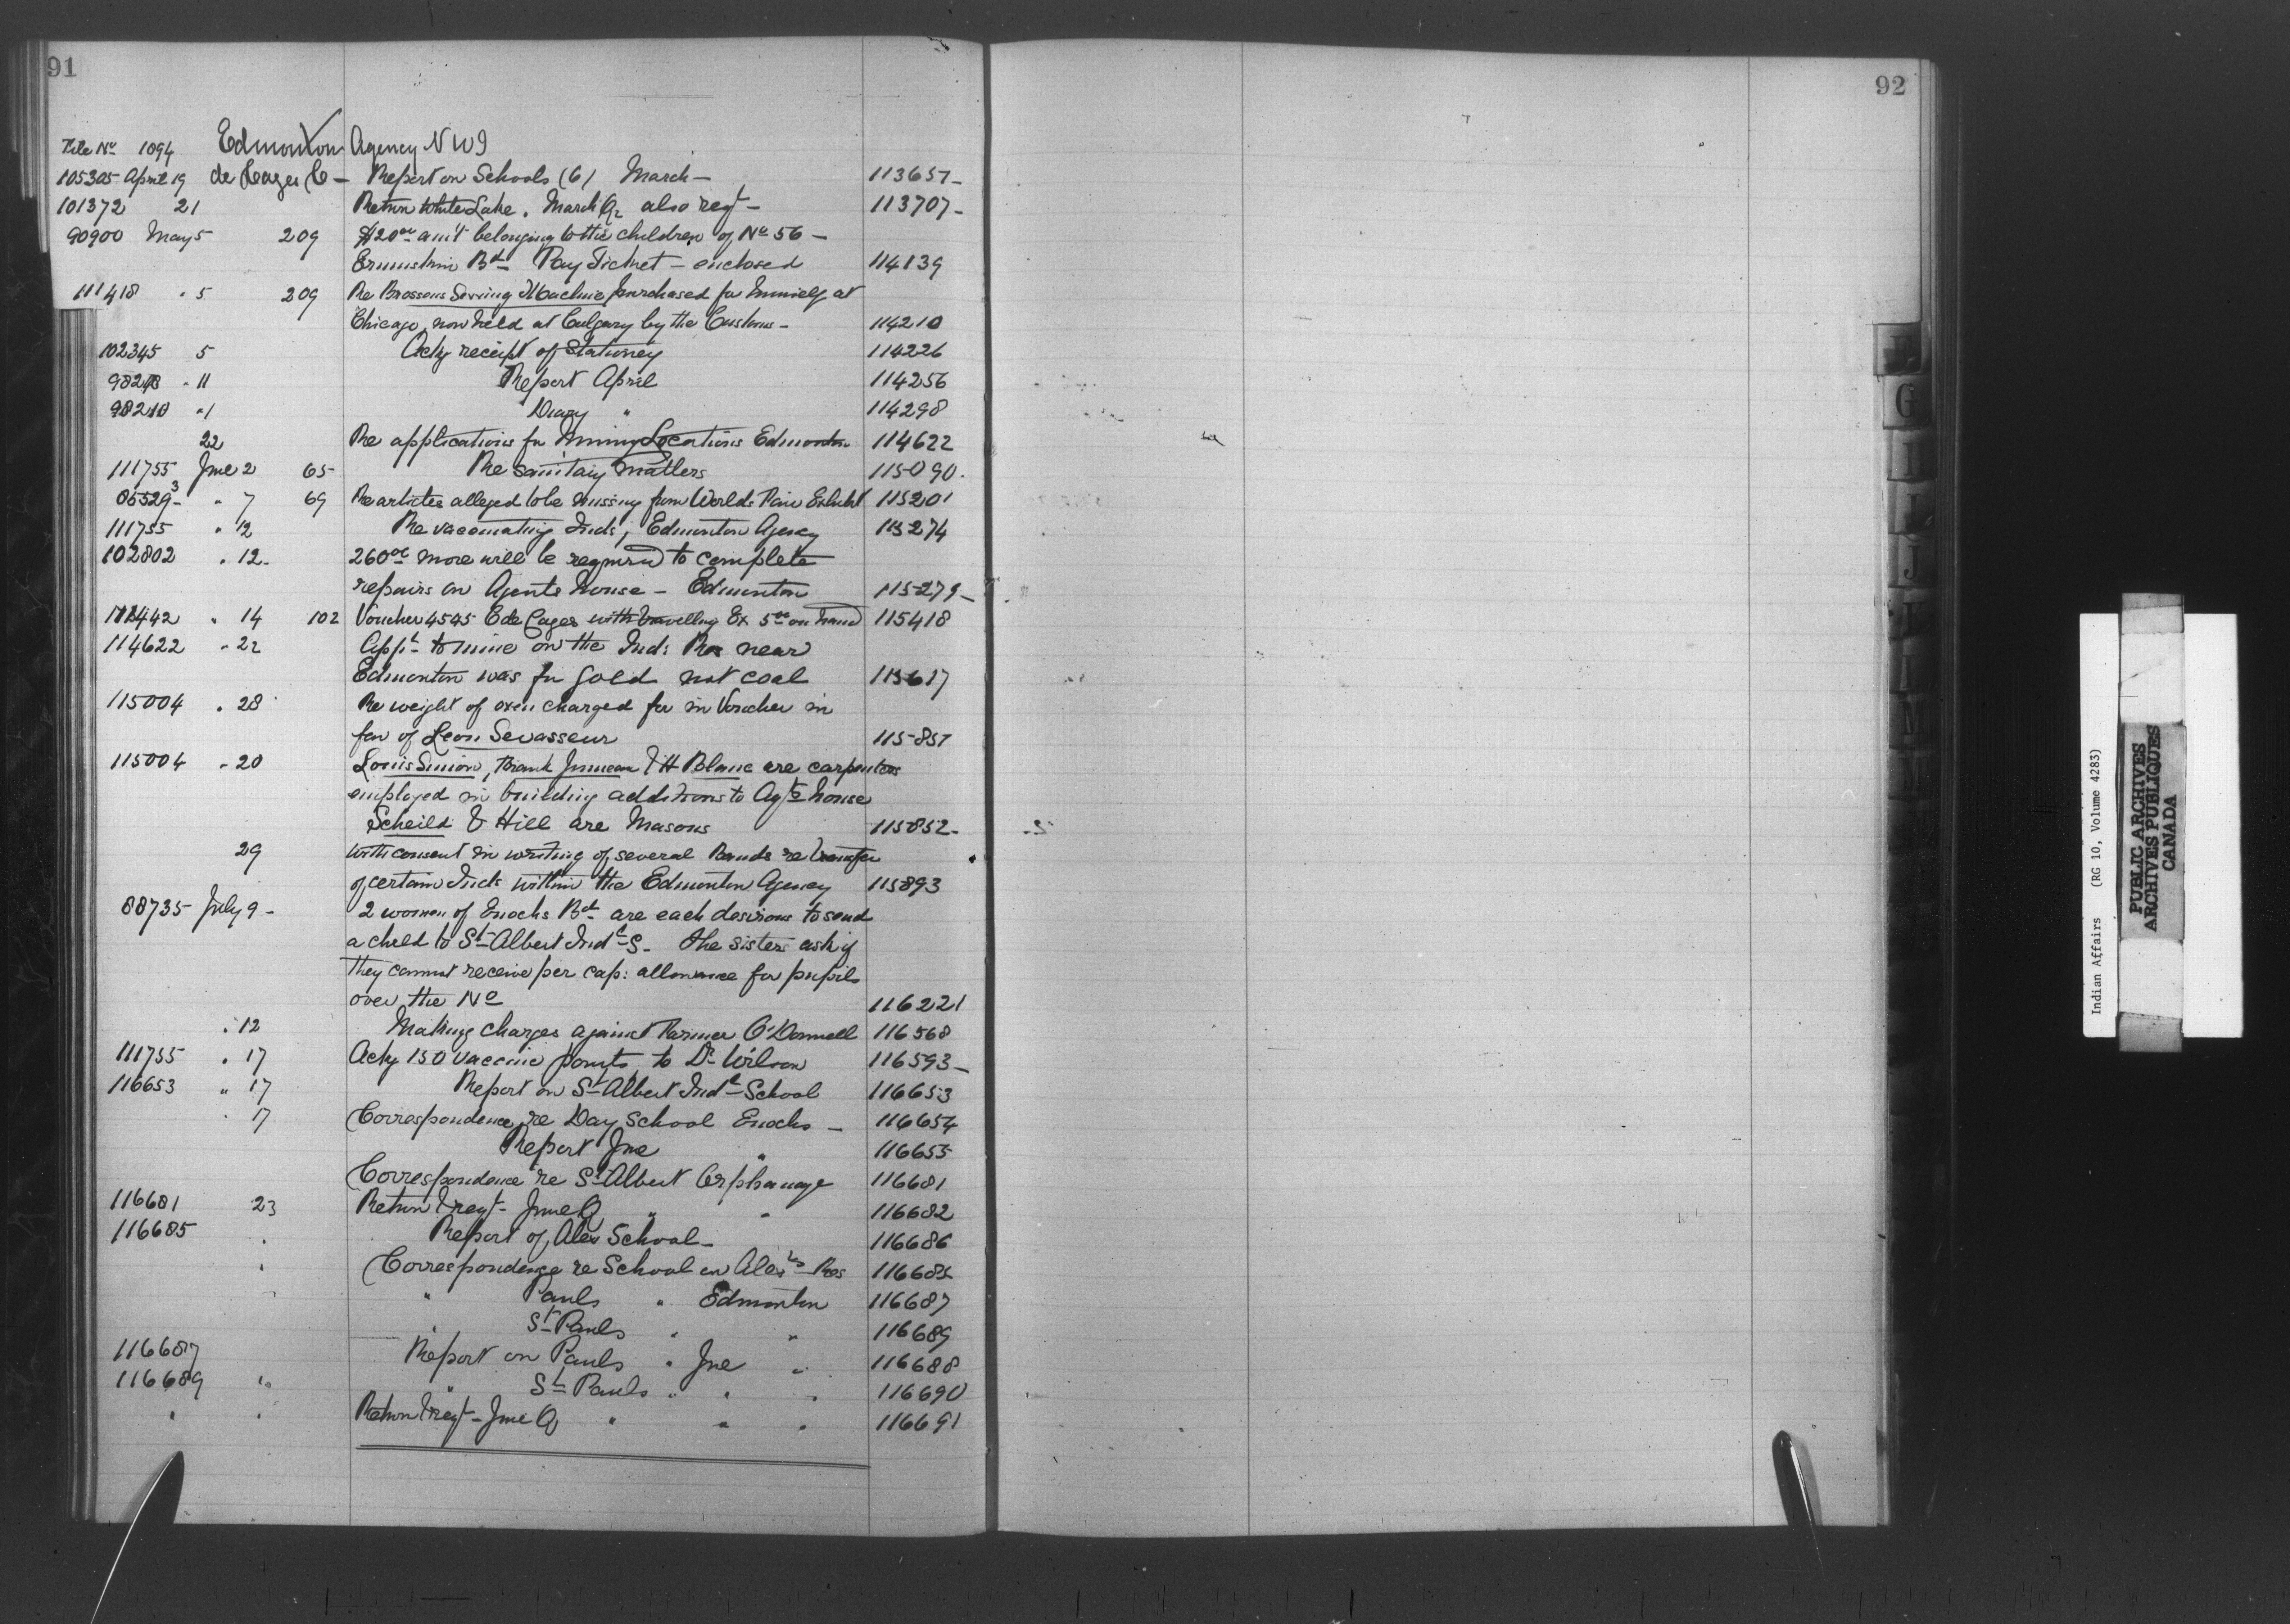 91
File No 1894 Edmonton Agency N W T
105305 April 19 de Cazes C — Report on Schools (6) March — 113657 —
101372 21 Return White Lake. March Qr also reqt — 113707 —
90900 May 5 209 $20 00 am't belonging to the children of No 56 —
Ermuskin Bd Pay Ticket — enclosed 114139
111418 " 5 209 Re Brossons Sewing Machine purchased for himself at
Chicago, now held at Calgary by the Customs — 114210
102345 5 Ackg receipt of Stationey 114226
98210 " 11 Report April 114256
98210 " 1 Diary " 114298
22 Re applications for Mining Locations Edmonton 114622
111755 June 2 65 Re sanitary matters 115090.
85529-3 " 7 69 Re articles alleged to be missing from Worlds Fair Exhibit 115201
111755 " 12 Re vaccinating Inds, Edmonton Agency 115274
102802 " 12 — 260 00 more will be required to complete
repairs on Agents house — Edmonton 115279 —
112442 " 14 102 Voucher 4545 E de Cazes with travelling Ex 5 00 on hand 115418
114622 " 22 Appn to mine on the Ind: Res near
Edmonton was for gold not coal 115617
115004 " 28 Re weight of oxen charged for in Voucher in
fav of Leon Levasseur 115851
115004 " 20 Louis Simon, Frank Juneau & H Blanc are carpenters
employed in building additions to Agts house
Scheild & Hill are Masons 115852 —
29 With consent in writing of several Bands re transfer
of certain Inds within the Edmonton Agency 115893
88735 July 9 — 2 women of Enochs Bd are each desirous to send
a child to St Albert Indl S — the sisters ask if
they cannot receive per cap: allowance for pupils
over the No 116221
" 12 Making charges against Farmer O'Donnell 116568
111755 " 17 Ackg 150 vaccine points to Dr Wilson 116593 —
116653 " 17 Report on St Albert Indl School 116653
" 17 Correspondence re Day School Enochs — 116654
Report June " 116655
Correspondence re St Albert Orphanage 116681
116681 23 Return & reqt — June Q " " 116682
116685 " Report of Alex School — 116686
" Correspondence re School on Alexrs Res 116685
" Pauls " Edmonton 116687
" St Pauls " " 116689
116687 Report on Pauls " June " 116688
116689 " " St Pauls " " " 116690
" " Return & reqt — June Q " " " 116691
92
G
I
J
M
Indian Affairs (RG 10, Volume 4283)
PUBLIC ARCHIVES
ARCHIVES PUBLIQUES
CANADA